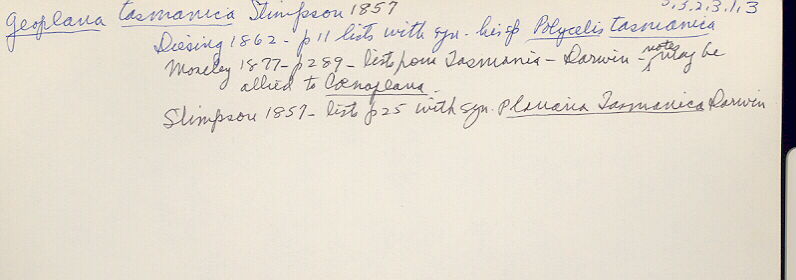 Geoplana tasmanica Stimpson 1857
5,3,2,3,1,1,3
Diesing 1862 - p11 lists with syn. his sp Polycelis tasmanica
Moseley 1877 - p289 - lists from Tasmania - Darwin - notes may be
allied to Cœnoplana.
Stimpson 1857 - lists p25 with syn. Planaria Tasmanica Darwin